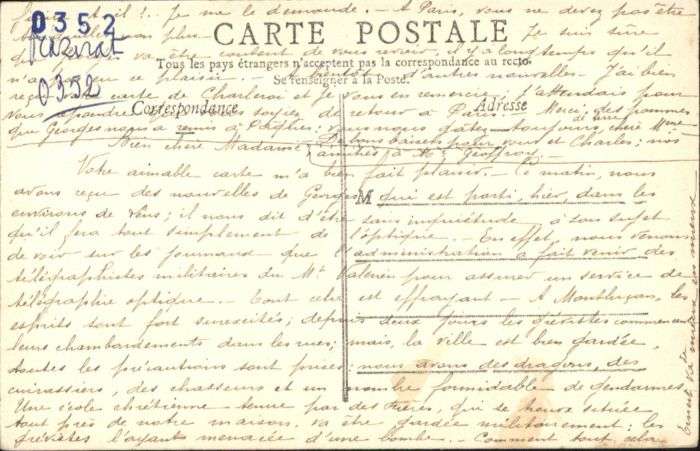 0352
Mazirat
0352
CARTE POSTALE
Tous les pays étrangers n'acceptent pas la correspondance au recto.
Se renseigner à la Poste.
Correspondance
Adresse
M
finira-t-il ?. Je me le demande. - A Paris, vous ne devez pas être
Je suis sûre
va être content de vous revoir, il y a longtemps qu'il
n'a ce plaisir. - d'autres nouvelles. - J'ai bien
reçu carte de Charleroi et je vous en remercie; j'attendais pour
vous répondre que vous soyiez de retour à Paris. Merci des pommes de terre
que Georges nous a remis à ; vous nous gâtez toujours, chère Mme
De bons baisers pour vous et Charles; nos
amitiés à Mr Geoffroy.
Bien chère Madame,
Votre aimable carte m'a bien fait plaisir. - Ce matin, nous
avons reçu des nouvelles de Georges qui est parti, hier, dans les
environs de Vous; il nous dit d'être sans inquiétude à son sujet
qu'il fera tout simplement de l'optique. - En effet, nous venons
de voir sur les journaux que l'administration a fait venir des
télégraphistes militaires du Mt Valérien pour assurer un service de
télégraphie optique. - Tout cela est effrayant - A Montluçon, les
esprits sont fort surexcités; depuis deux jours les grévistes commencent
leurs chambardements dans les rues; mais, la ville est bien gardée,
toutes les précautions sont prises: nous avons des dragons, des
cuirassiers, des chasseurs et un nombre formidable de gendarmes.
Une école chrétienne tenue par des Frères, qui se trouve située
tout près de notre maison, va être gardée militairement; les
grévistes l'ayant menacée d'une bombe. - Comment tout cela